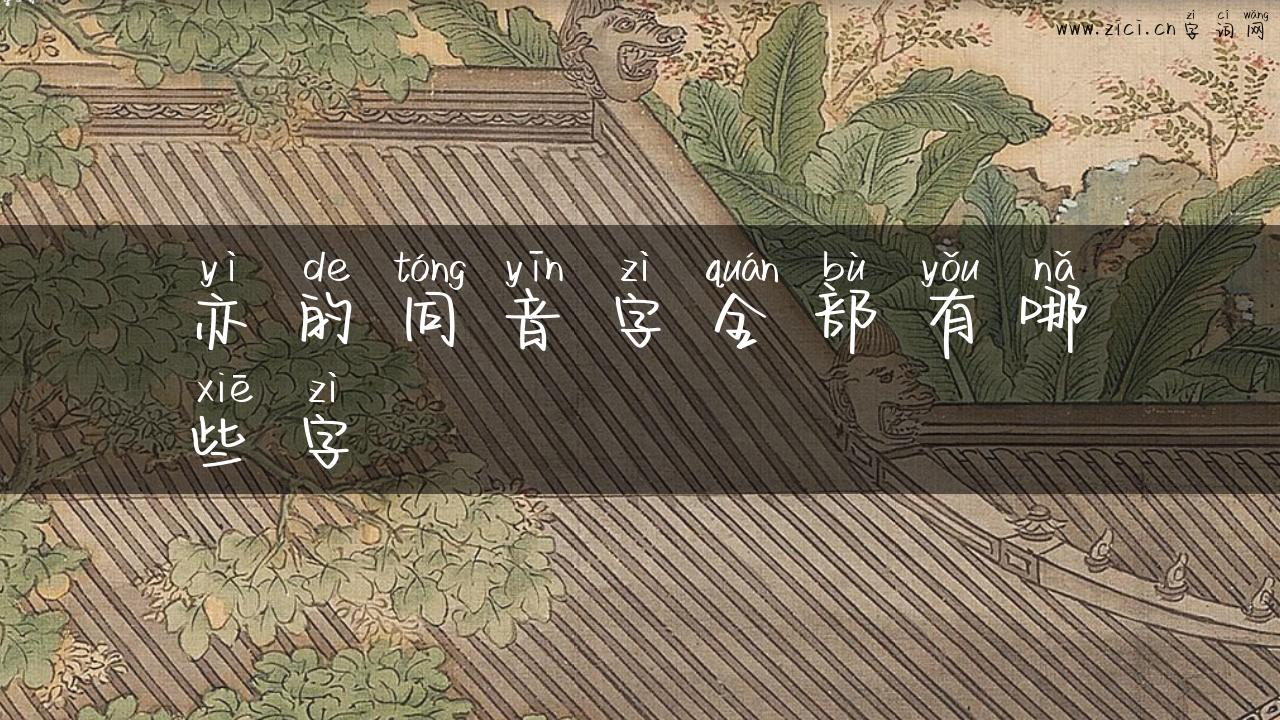 zì cí wǎng
www.zici.cn 字 词 网
yì de tóng yīn zì quán bù yǒu nǎ
亦 的 同 音 字 全 部 有 哪
xiē zì
些 字